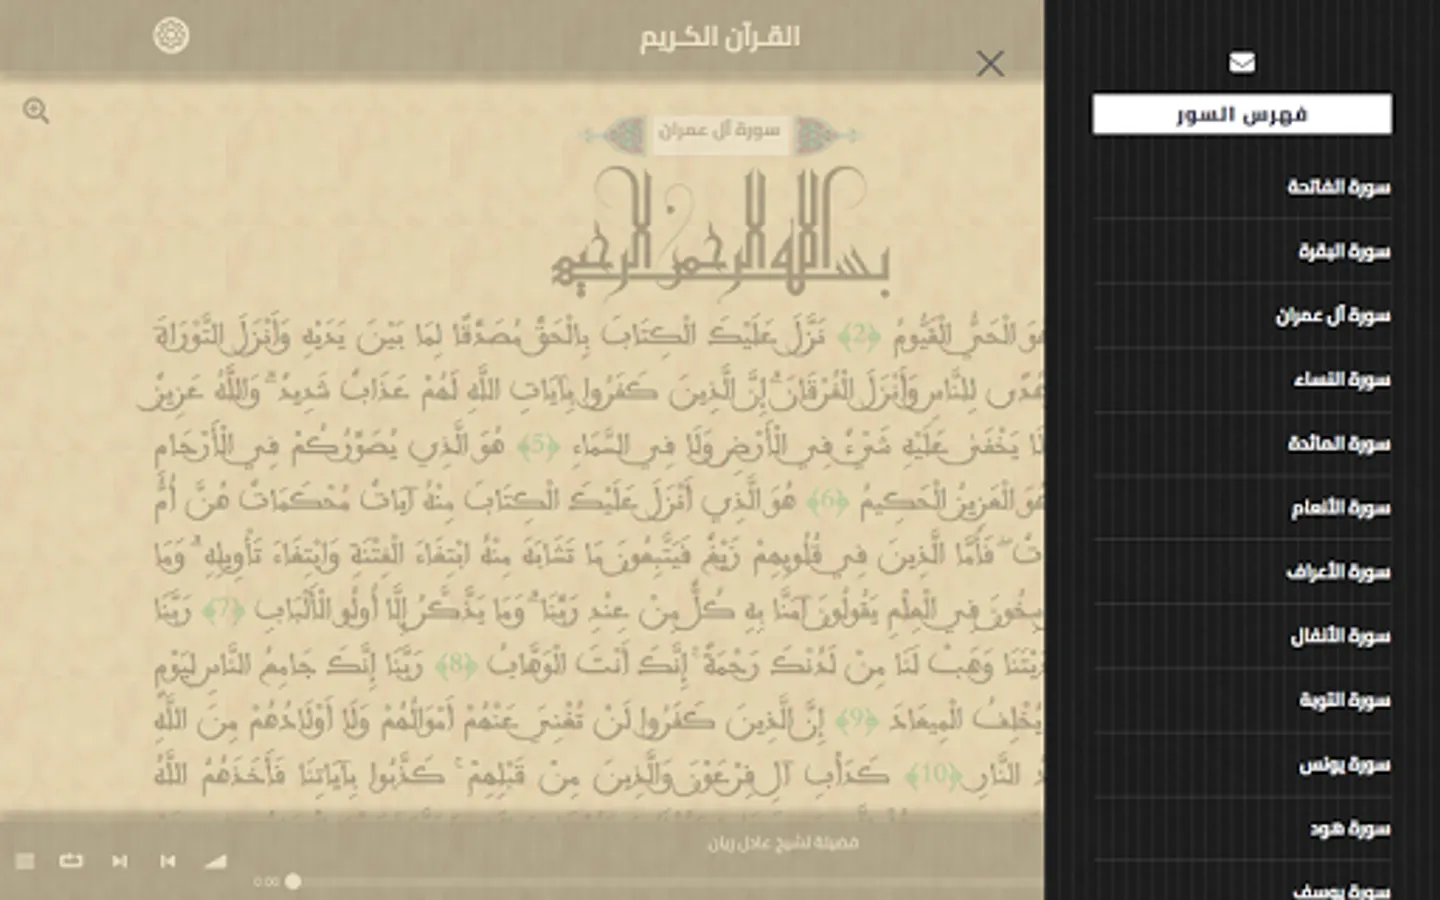 القرآن الكريم
سورة آل عمران
بسم الله الرحمن الرحيم
هُوَ الْحَيُّ الْقَيُّومُ ﴿2﴾ نَزَّلَ عَلَيْكَ الْكِتَابَ بِالْحَقِّ مُصَدِّقًا لِمَا بَيْنَ يَدَيْهِ وَأَنْزَلَ التَّوْرَاةَ
هُدًى لِلنَّاسِ وَأَنْزَلَ الْفُرْقَانَ ۗ إِنَّ الَّذِينَ كَفَرُوا بِآيَاتِ اللَّهِ لَهُمْ عَذَابٌ شَدِيدٌ ۗ وَاللَّهُ عَزِيزٌ
لَا يَخْفَىٰ عَلَيْهِ شَيْءٌ فِي الْأَرْضِ وَلَا فِي السَّمَاءِ ﴿5﴾ هُوَ الَّذِي يُصَوِّرُكُمْ فِي الْأَرْحَامِ
هُوَ الْعَزِيزُ الْحَكِيمُ ﴿6﴾ هُوَ الَّذِي أَنْزَلَ عَلَيْكَ الْكِتَابَ مِنْهُ آيَاتٌ مُحْكَمَاتٌ هُنَّ أُمُّ
تٌ ۖ فَأَمَّا الَّذِينَ فِي قُلُوبِهِمْ زَيْغٌ فَيَتَّبِعُونَ مَا تَشَابَهَ مِنْهُ ابْتِغَاءَ الْفِتْنَةِ وَابْتِغَاءَ تَأْوِيلِهِ ۗ وَمَا
سِخُونَ فِي الْعِلْمِ يَقُولُونَ آمَنَّا بِهِ كُلٌّ مِنْ عِنْدِ رَبِّنَا ۗ وَمَا يَذَّكَّرُ إِلَّا أُولُو الْأَلْبَابِ ﴿7﴾ رَبَّنَا
دَيْتَنَا وَهَبْ لَنَا مِنْ لَدُنْكَ رَحْمَةً ۚ إِنَّكَ أَنْتَ الْوَهَّابُ ﴿8﴾ رَبَّنَا إِنَّكَ جَامِعُ النَّاسِ لِيَوْمٍ
يُخْلِفُ الْمِيعَادَ ﴿9﴾ إِنَّ الَّذِينَ كَفَرُوا لَنْ تُغْنِيَ عَنْهُمْ أَمْوَالُهُمْ وَلَا أَوْلَادُهُمْ مِنَ اللَّهِ
دُ النَّارِ ﴿10﴾ كَدَأْبِ آلِ فِرْعَوْنَ وَالَّذِينَ مِنْ قَبْلِهِمْ ۚ كَذَّبُوا بِآيَاتِنَا فَأَخَذَهُمُ اللَّهُ
فضيلة لشيخ عادل ريان
0:00
فهرس السور
سورة الفاتحة
سورة البقرة
سورة آل عمران
سورة النساء
سورة المائدة
سورة الأنعام
سورة الأعراف
سورة الأنفال
سورة التوبة
سورة يونس
سورة هود
سورة يوسف